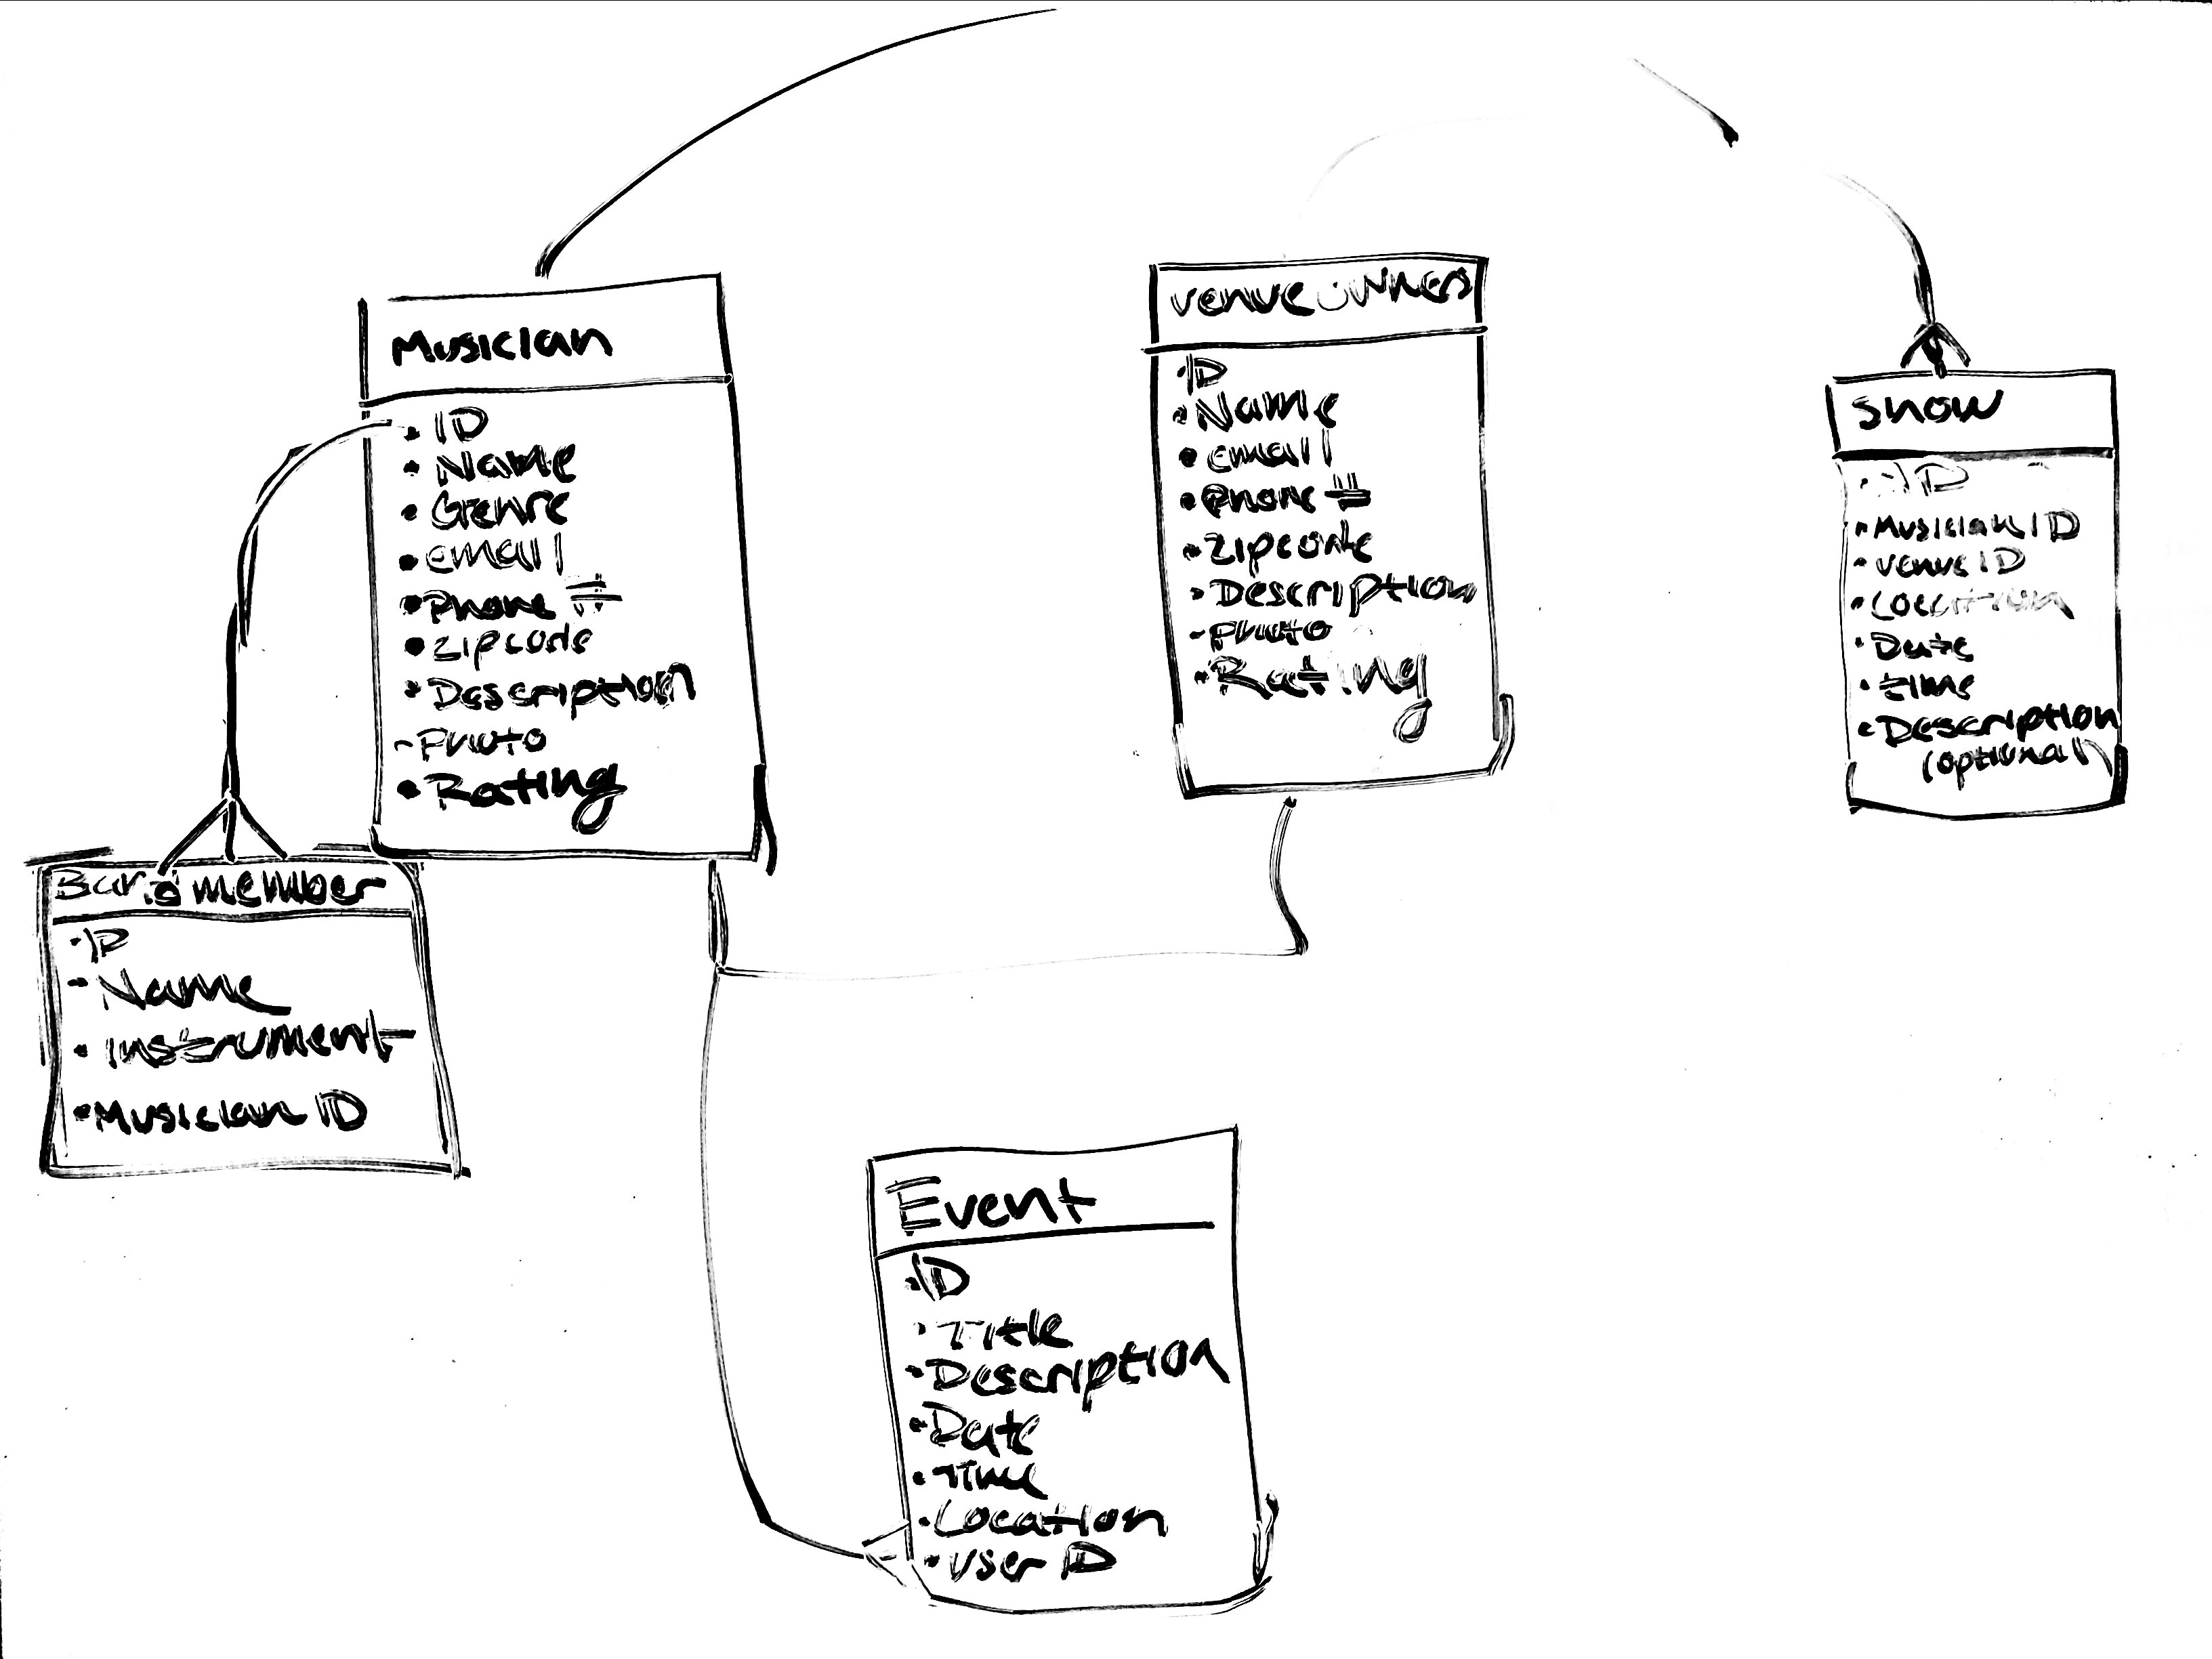 Musician
• ID
• Name
• Genre
• email
• Phone #
• zipcode
• Description
- Photo
• Rating
venue owners
• ID
• Name
• email
• Phone #
• zipcode
• Description
- Photo
• Rating
show
• ID
• Musician ID
• venue ID
• Location
• Date
• time
• Description
(optional)
Band member
• ID
- Name
• instrument
• Musician ID
Event
• ID
• Title
• Description
• Date
• Time
• Location
• User ID